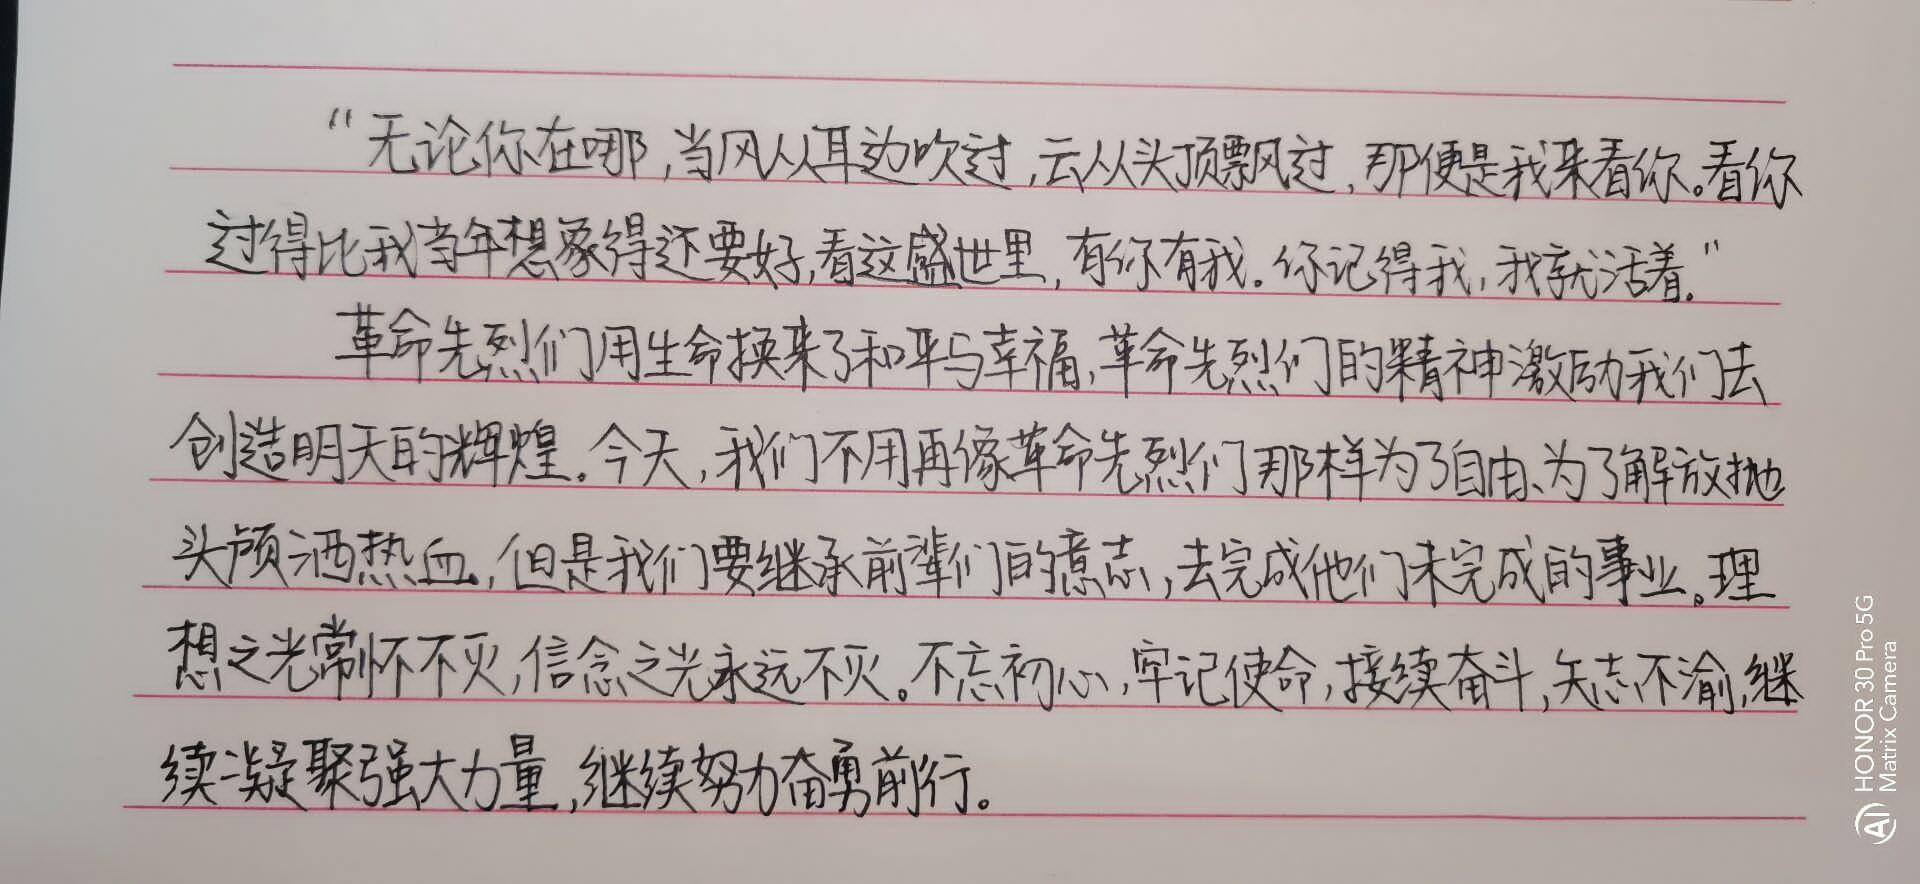 “无论你在哪,当风从耳边吹过,云从头顶飘风过,那便是我来看你。看你
过得比我当年想象得还要好,看这盛世里,有你有我。你记得我,我就活着。”
革命先烈们用生命换来了和平与幸福,革命先烈们的精神激励我们去
创造明天的辉煌。今天,我们不用再像革命先烈们那样为了自由、为了解放抛
头颅洒热血,但是我们要继承前辈们的意志,去完成他们未完成的事业。理
想之光常怀不灭,信念之光永远不灭。不忘初心,牢记使命,接续奋斗,矢志不渝,继
续凝聚强大力量,继续努力奋勇前行。
HONOR 30 Pro 5G
Matrix Camera
AI